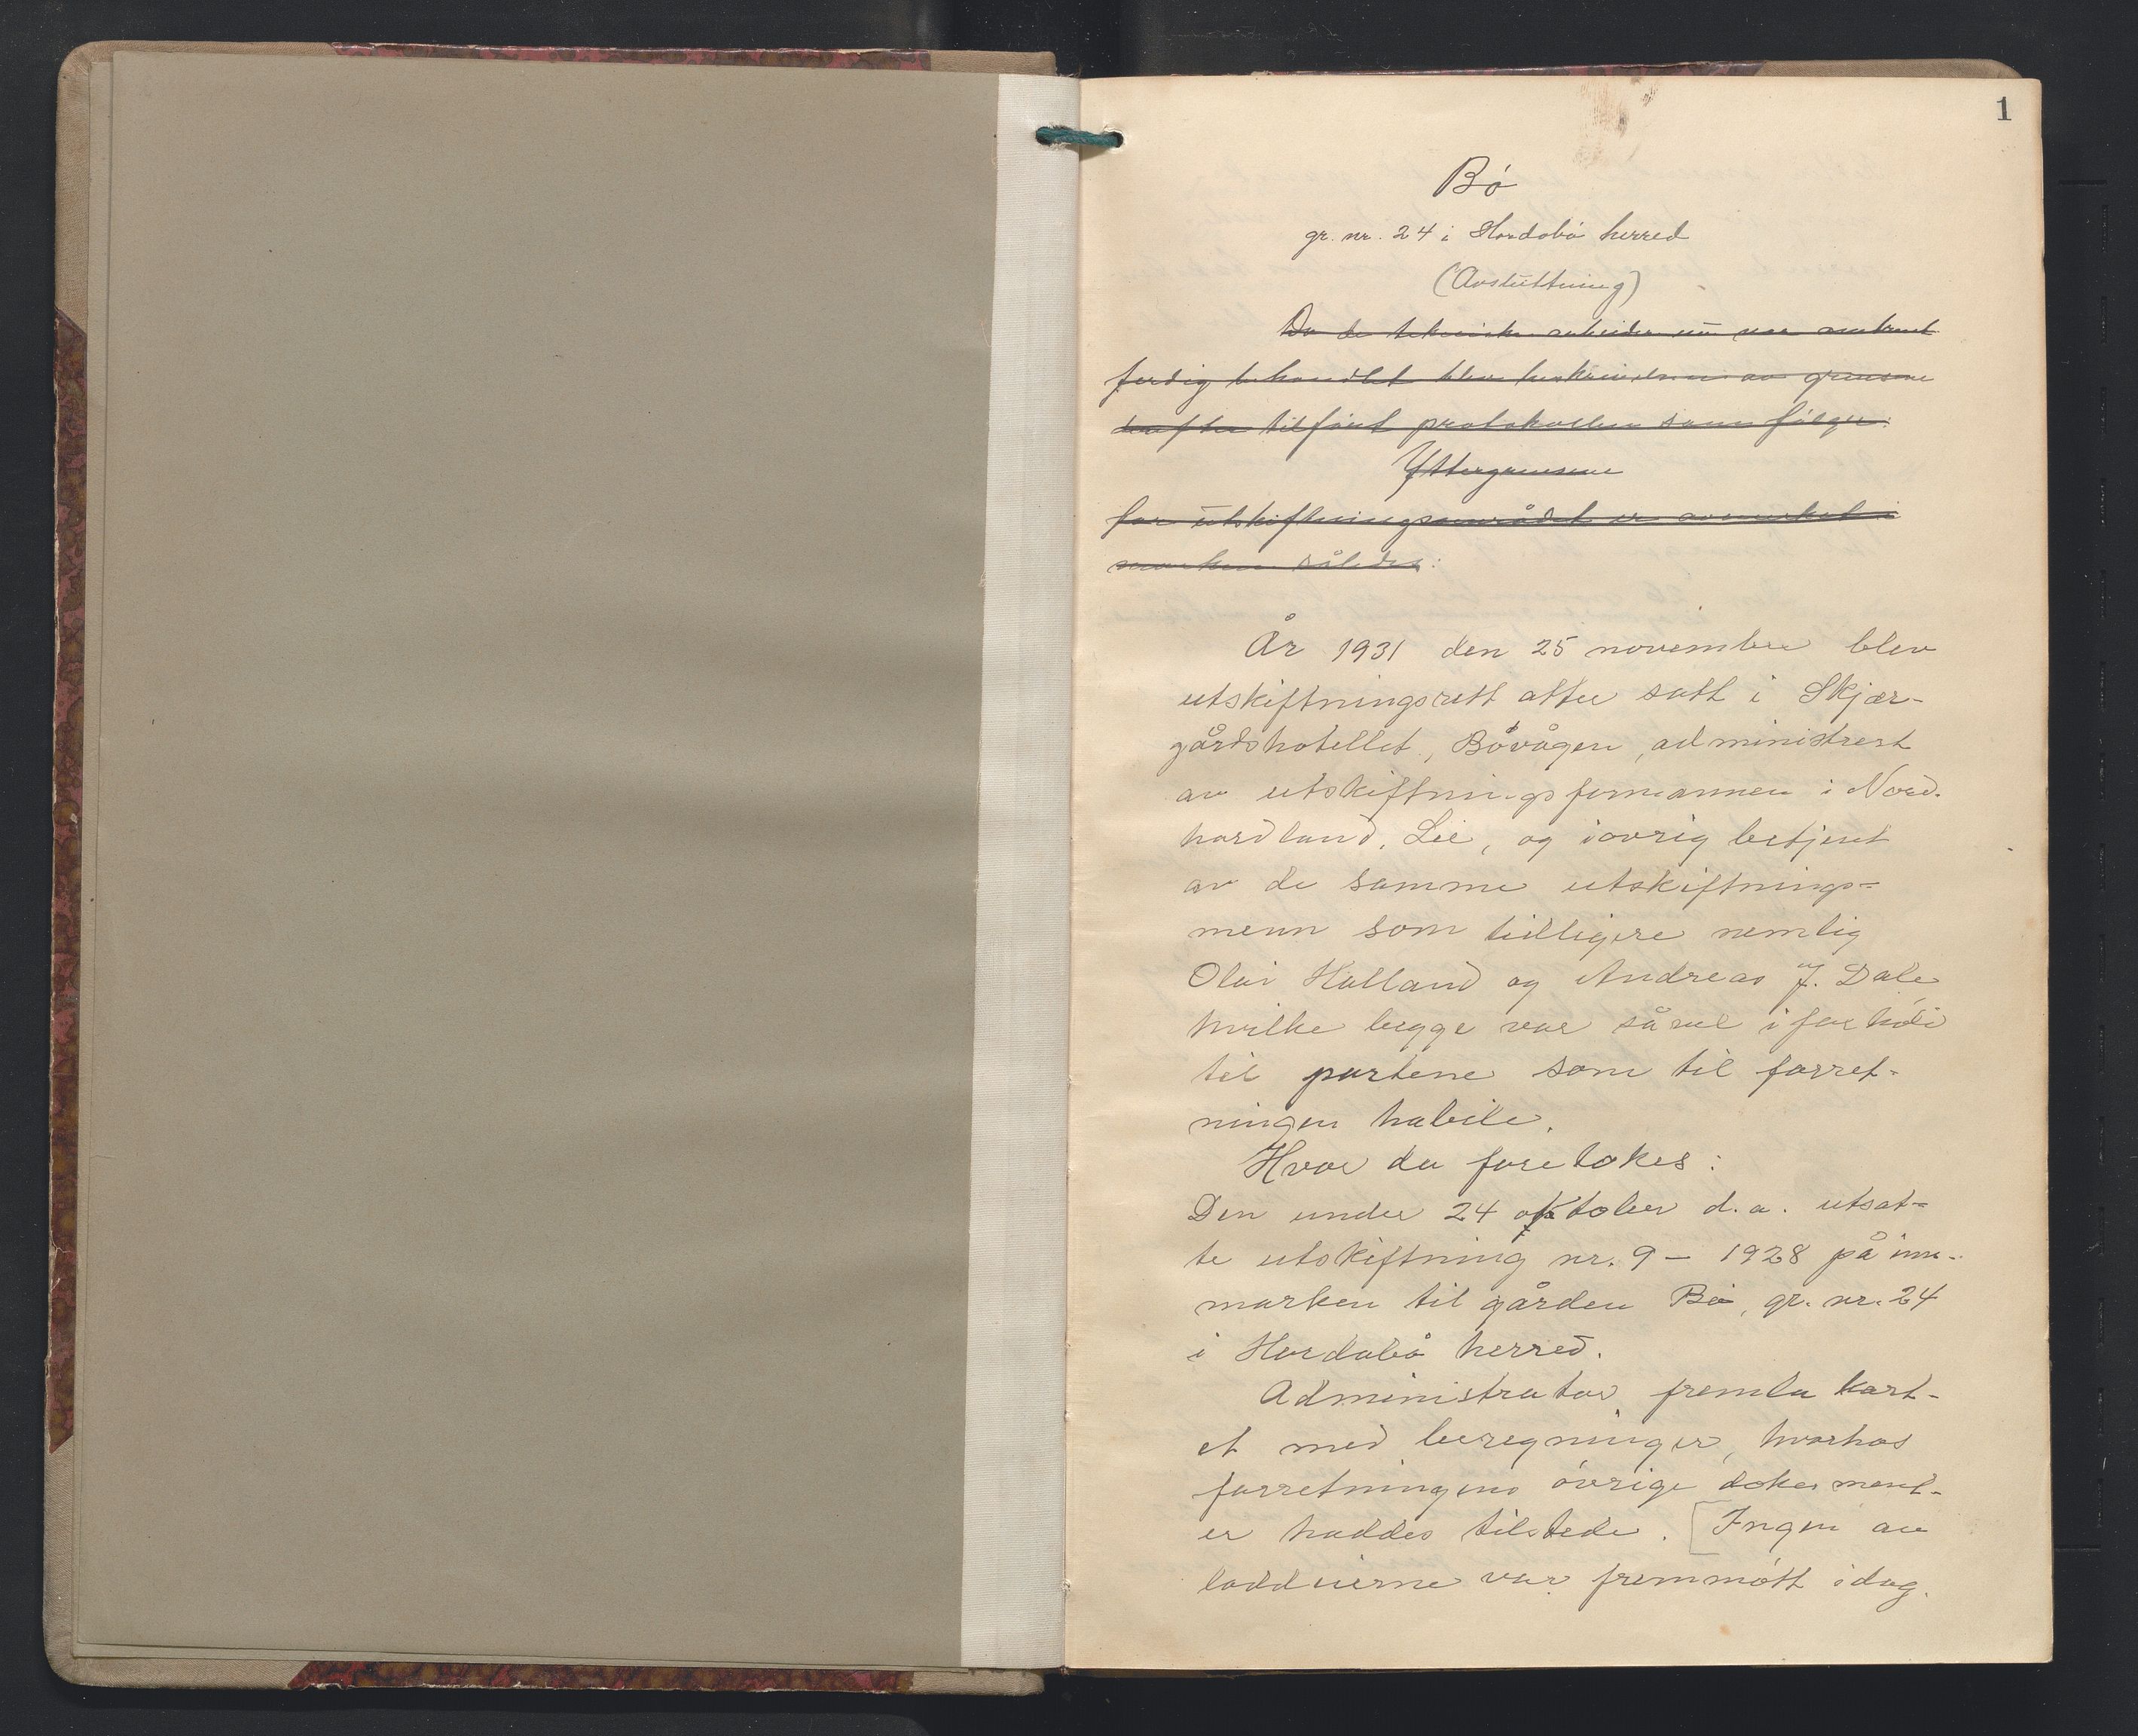 1
Bö
gr. nr. 24 i Hordabö herred
(Avsluttning)
Da de tekniske arbeider nu var
ferdig behandlet blev beskrivelsen av grensene
derefter tilført protokollen som følger:
Yttergrensene
for utskiftningsområdet er avmerket i
marken således:
År 1931 den 25 november blev
utskiftningsrett atter satt i Skjær-
gårdshotellet, Bövågen, administrert
av utskiftningsformannen i Nord-
hordland, Lie, og iøvrig betjent
av de samme utskiftnings-
menn som tidligere nemlig
Olai Halland og Andreas J. Dale
hvilke begge var såvel i forhold
til partene som til forret-
ningen habile.
Hvor da foretokes:
Den under 24 oktober d.a. utsat-
te utskiftning nr. 9 - 1928 på inn-
marken til gården Bö, gr. nr. 24
i Hordabö herred.
Administrator fremla kart-
et med beregninger, hvorhos
forretningens övrige dokument-
er haddes tilstede. [Ingen av
loddeierne var fremmött idag.